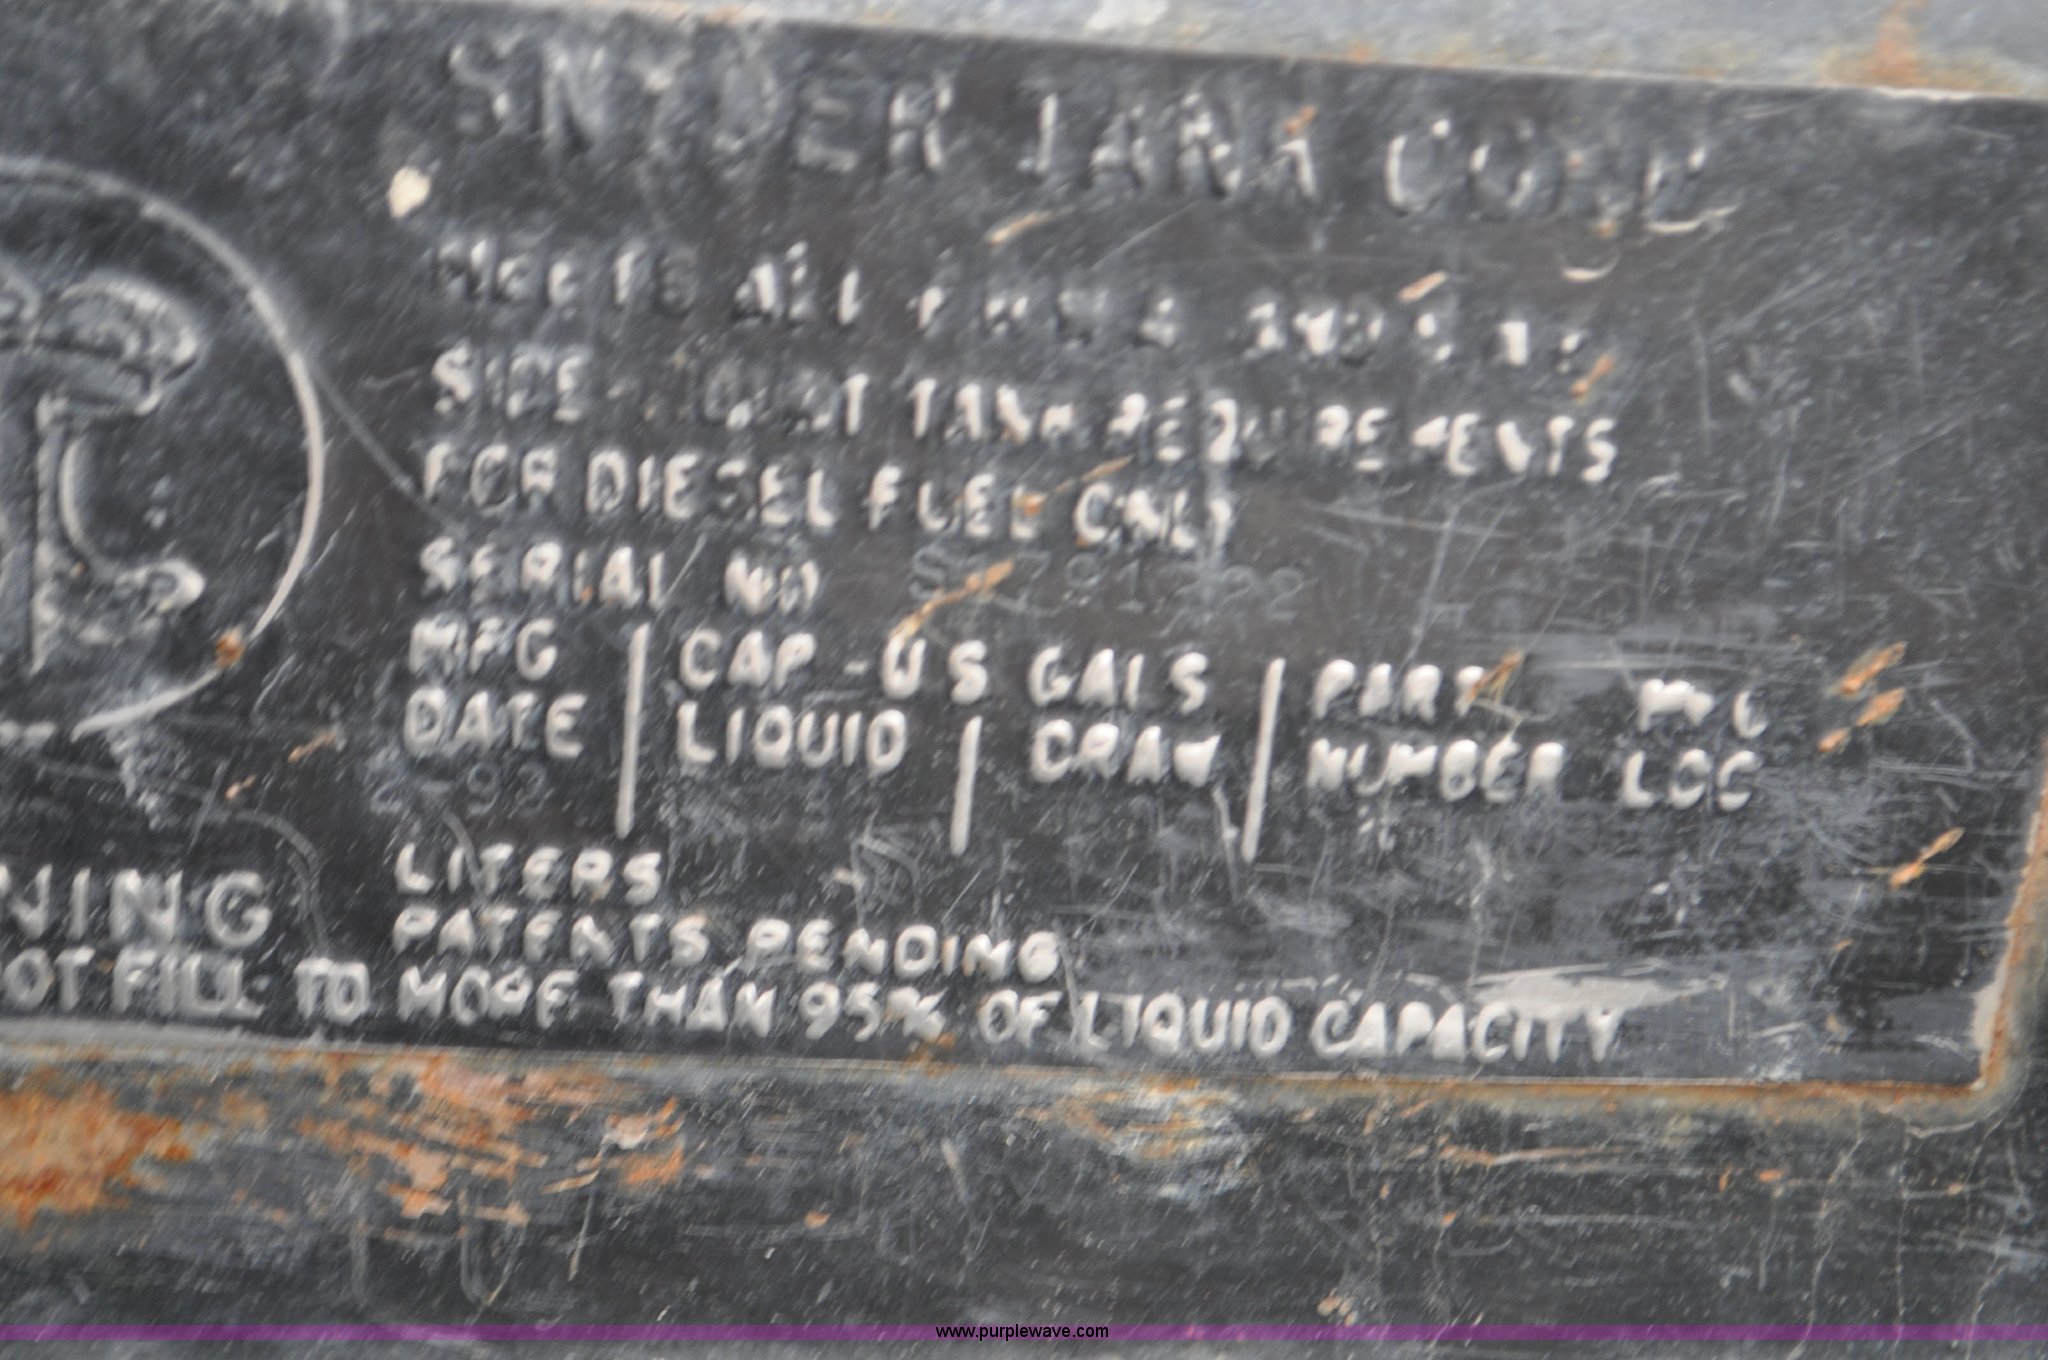 SNYDER TANK CORP
MEETS ALL FHWA AND
SIDE-MOUNT TANK REQUIREMENTS
FOR DIESEL FUEL ONLY
SERIAL NO
MFG CAP-US GALS PART MFG
DATE LIQUID DRAW NUMBER LOC
2-93
LITERS
PATENTS PENDING
NING
OT FILL TO MORE THAN 95% OF LIQUID CAPACITY
www.purplewave.com